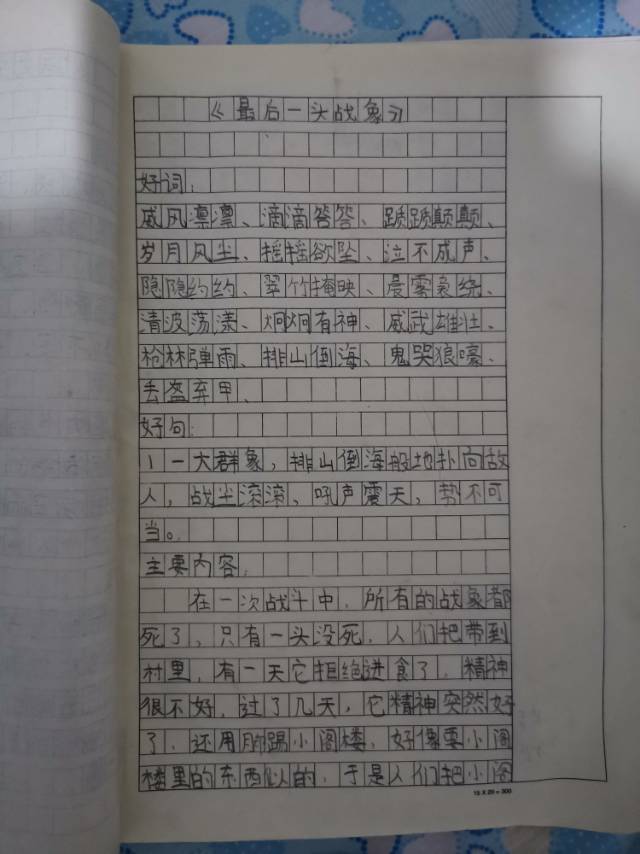 《最后一头战象》
好词:
威风凛凛、滴滴答答、踬踬颠颠、
岁月风尘、摇摇欲坠、泣不成声、
隐隐约约、翠竹掩映、晨雾袅绕、
清波荡漾、炯炯有神、威武雄壮、
枪林弹雨、排山倒海、鬼哭狼嚎、
丢盔弃甲、
好句:
1一大群象,排山倒海般地扑向敌
人,战尘滚滚、吼声震天,势不可
当。
主要内容:
在一次战斗中,所有的战象都
死了,只有一头没死,人们把带到
村里,有一天它拒绝进食了,精神
很不好,过了几天,它精神突然好
了,还用脚踢小阁楼,好像要小阁
楼里的东西似的,于是人们把小阁
15 X 20 = 300